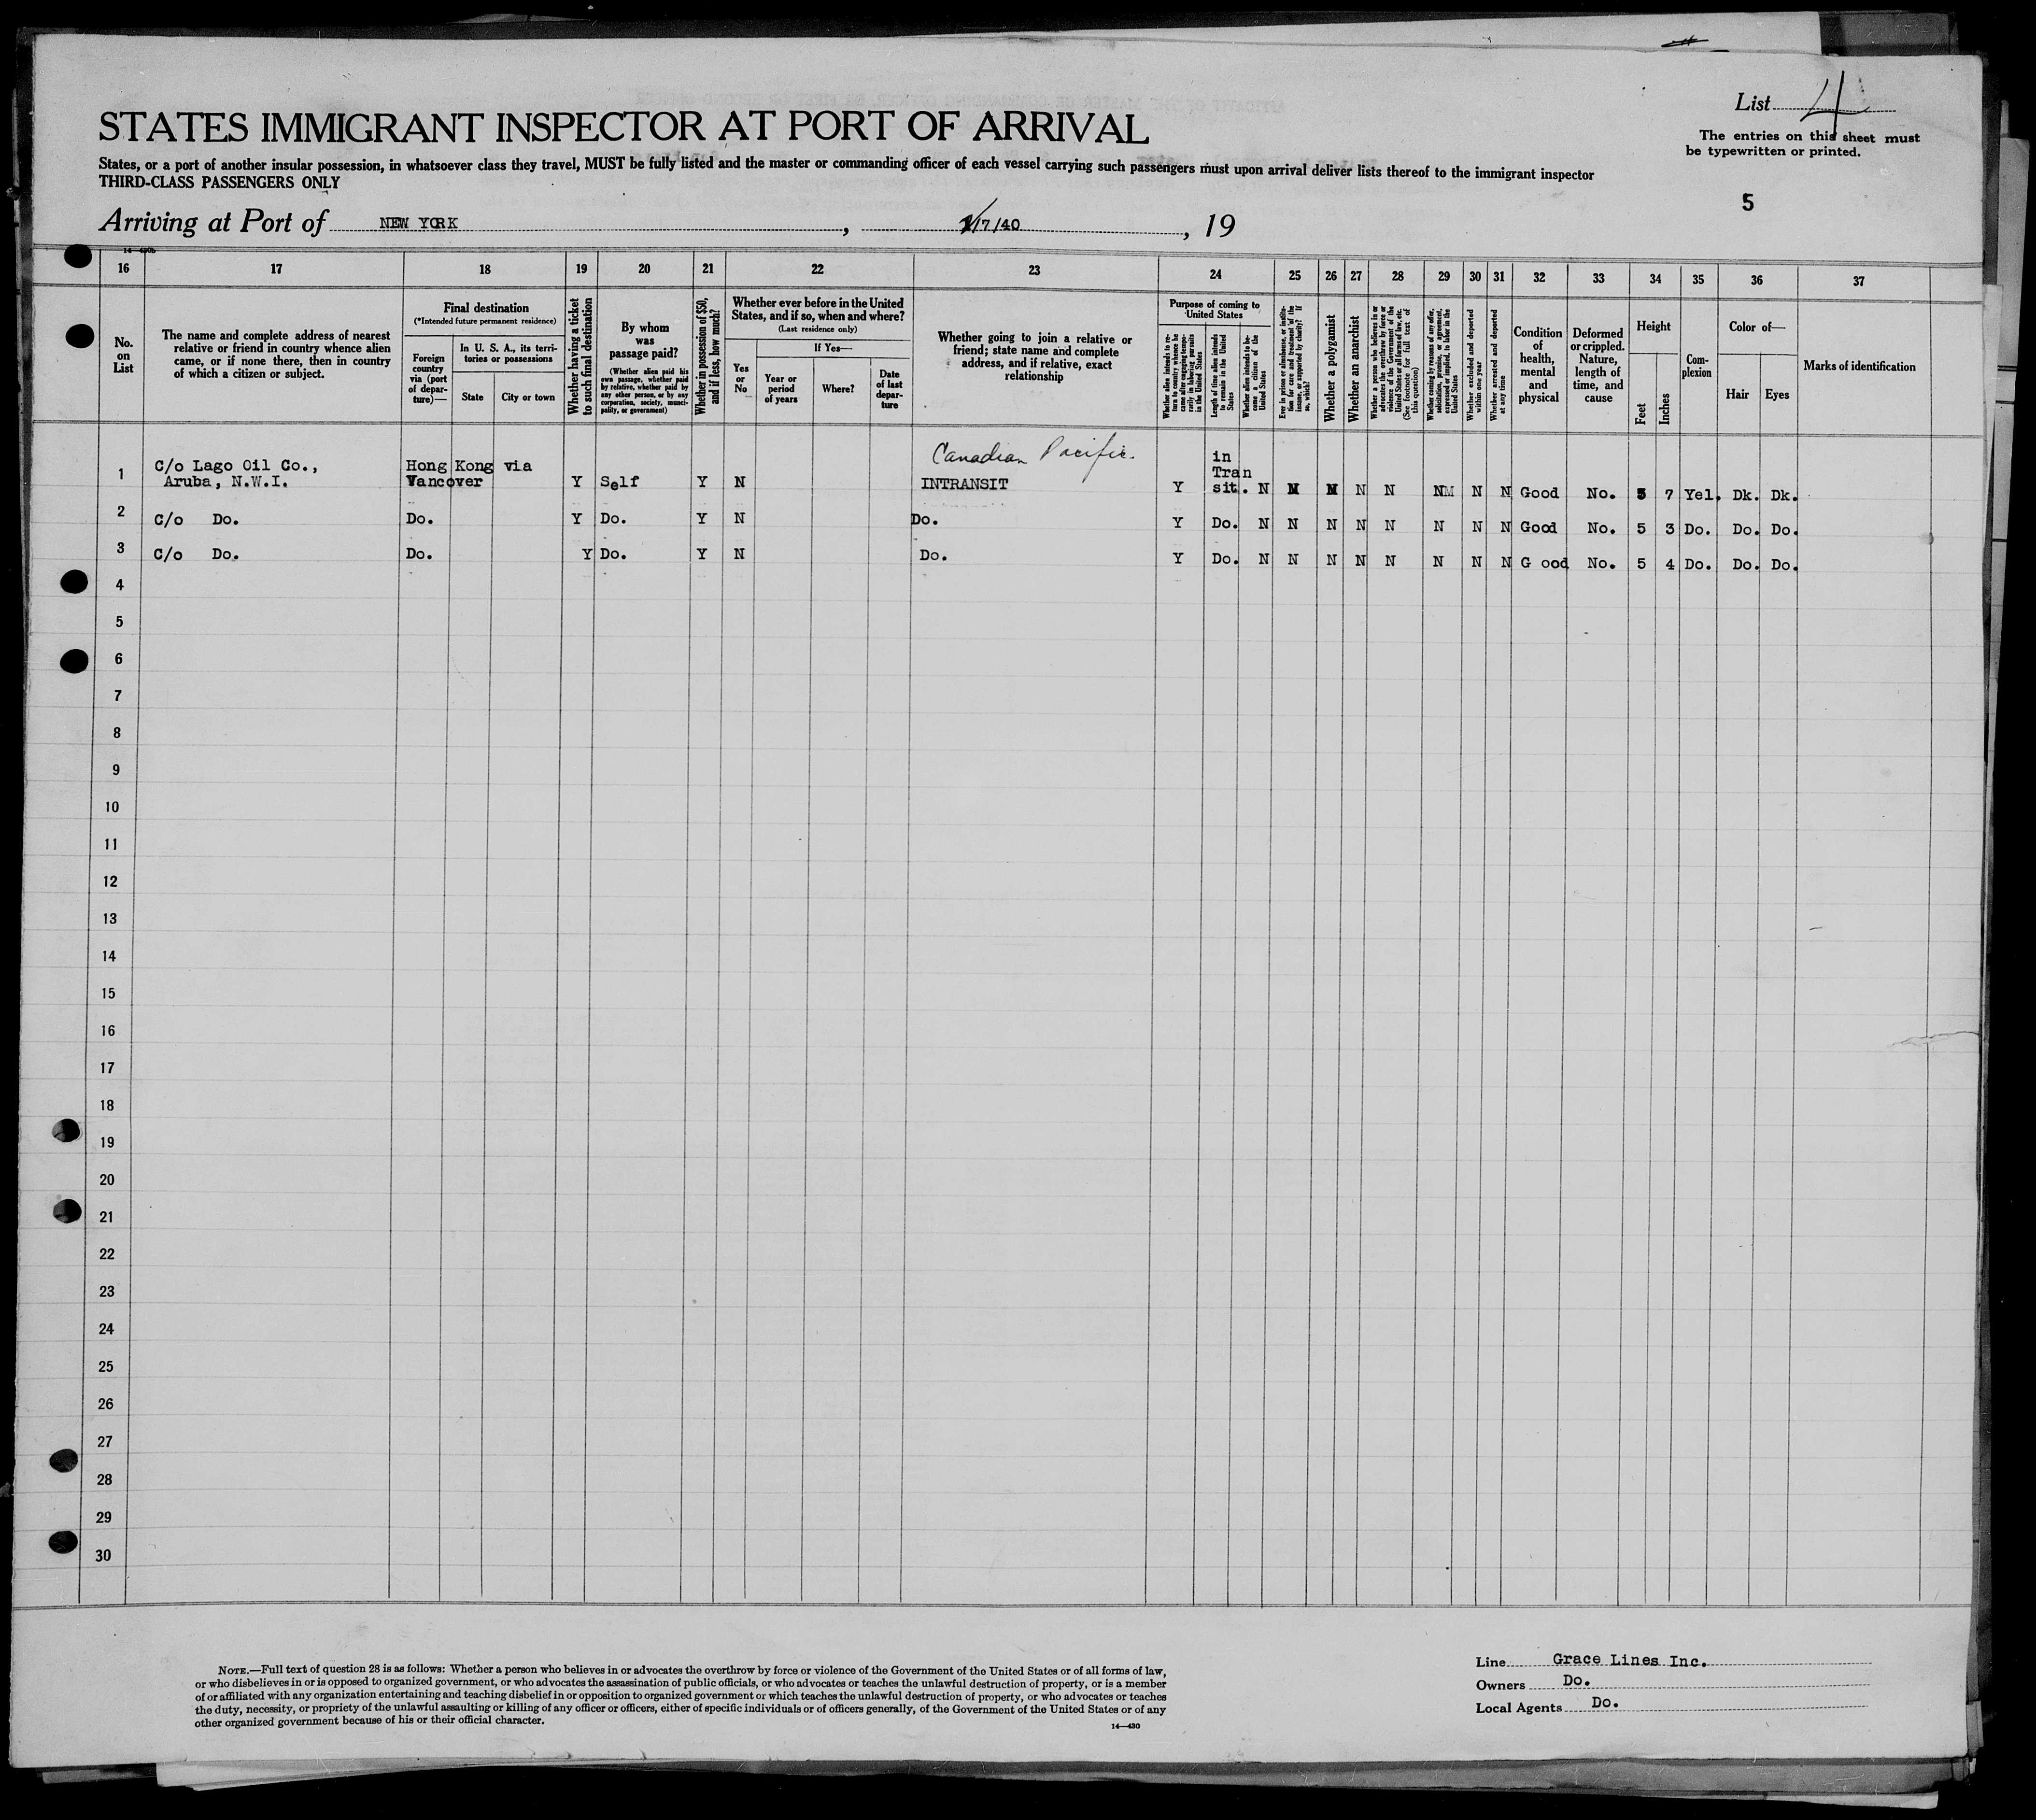 List 4
STATES IMMIGRANT INSPECTOR AT PORT OF ARRIVAL
The entries on this sheet must
be typewritten or printed.
States, or a port of another insular possession, in whatsoever class they travel, MUST be fully listed and the master or commanding officer of each vessel carrying such passengers must upon arrival deliver lists thereof to the immigrant inspector
THIRD-CLASS PASSENGERS ONLY
5
Arriving at Port of NEW YORK, 1/17/40, 19
16 17 18 19 20 21 22 23 24 25 26 27 28 29 30 31 32 33 34 35 36 37
No.
on
List
The name and complete address of nearest
relative or friend in country whence alien
came, or if none there, then in country
of which a citizen or subject.
Final destination
(*Intended future permanent residence)
Foreign
country
via (port
of depar-
ture)—
In U. S. A., its terri-
tories or possessions
State
City or town
Whether having a ticket
to such final destination
By whom
was
passage paid?
(Whether alien paid his
own passage, whether paid
by relative, whether paid by
any other person, or by any
corporation, society, munici-
pality, or government)
Whether in possession of $50,
and if less, how much?
Whether ever before in the United
States, and if so, when and where?
(Last residence only)
Yes
or
No
If Yes—
Year or
period
of years
Where?
Date
of last
depar-
ture
Whether going to join a relative or
friend; state name and complete
address, and if relative, exact
relationship
Purpose of coming to
United States
Whether alien intends to re-
turn to country whence he
came after engaging tempo-
rarily in laboring pursuits
in the United States
Length of time alien intends
to remain in the United
States
Whether alien intends to be-
come a citizen of the
United States
Ever in prison or almshouse, or institu-
tion for care and treatment of the
insane, or supported by charity? If
so, which?
Whether a polygamist
Whether an anarchist
Whether a person who believes in or
advocates the overthrow by force or
violence of the Government of the
United States or all forms of law, etc.
(See footnote for full text of
this question)
Whether coming by reason of any offer,
solicitation, promise, or agreement,
expressed or implied, to labor in the
United States
Whether excluded and deported
within one year
Whether arrested and deported
at any time
Condition
of
health,
mental
and
physical
Deformed
or crippled.
Nature,
length of
time, and
cause
Height
Feet
Inches
Com-
plexion
Color of—
Hair
Eyes
Marks of identification
Canadian Pacific.
1 C/o Lago Oil Co., Hong Kong via in
Tran
Aruba, N.W.I. Vancover Y Self Y N INTRANSIT Y sit. N N N N N N N N Good No. 5 7 Yel. Dk. Dk.
2 C/o Do. Do. Y Do. Y N Do. Y Do. N N N N N N N N Good No. 5 3 Do. Do. Do.
3 C/o Do. Do. Y Do. Y N Do. Y Do. N N N N N N N N G ood No. 5 4 Do. Do. Do.
4
5
6
7
8
9
10
11
12
13
14
15
16
17
18
19
20
21
22
23
24
25
26
27
28
29
30
NOTE.—Full text of question 28 is as follows: Whether a person who believes in or advocates the overthrow by force or violence of the Government of the United States or of all forms of law,
or who disbelieves in or is opposed to organized government, or who advocates the assassination of public officials, or who advocates or teaches the unlawful destruction of property, or is a member
of or affiliated with any organization entertaining and teaching disbelief in or opposition to organized government or which teaches the unlawful destruction of property, or who advocates or teaches
the duty, necessity, or propriety of the unlawful assaulting or killing of any officer or officers, either of specific individuals or of officers generally, of the Government of the United States or of any
other organized government because of his or their official character.
14—430
Line Grace Lines Inc.
Owners Do.
Local Agents Do.